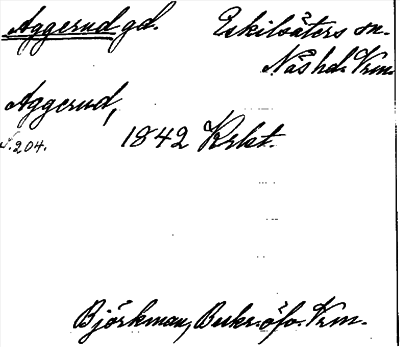 Aggerud gd. Eskilsäters sn.
Näs hd. Vrm.
Aggerud,
S. 204. 1842 Krkt.
Björkman, Beskr. öfv. Vrm.